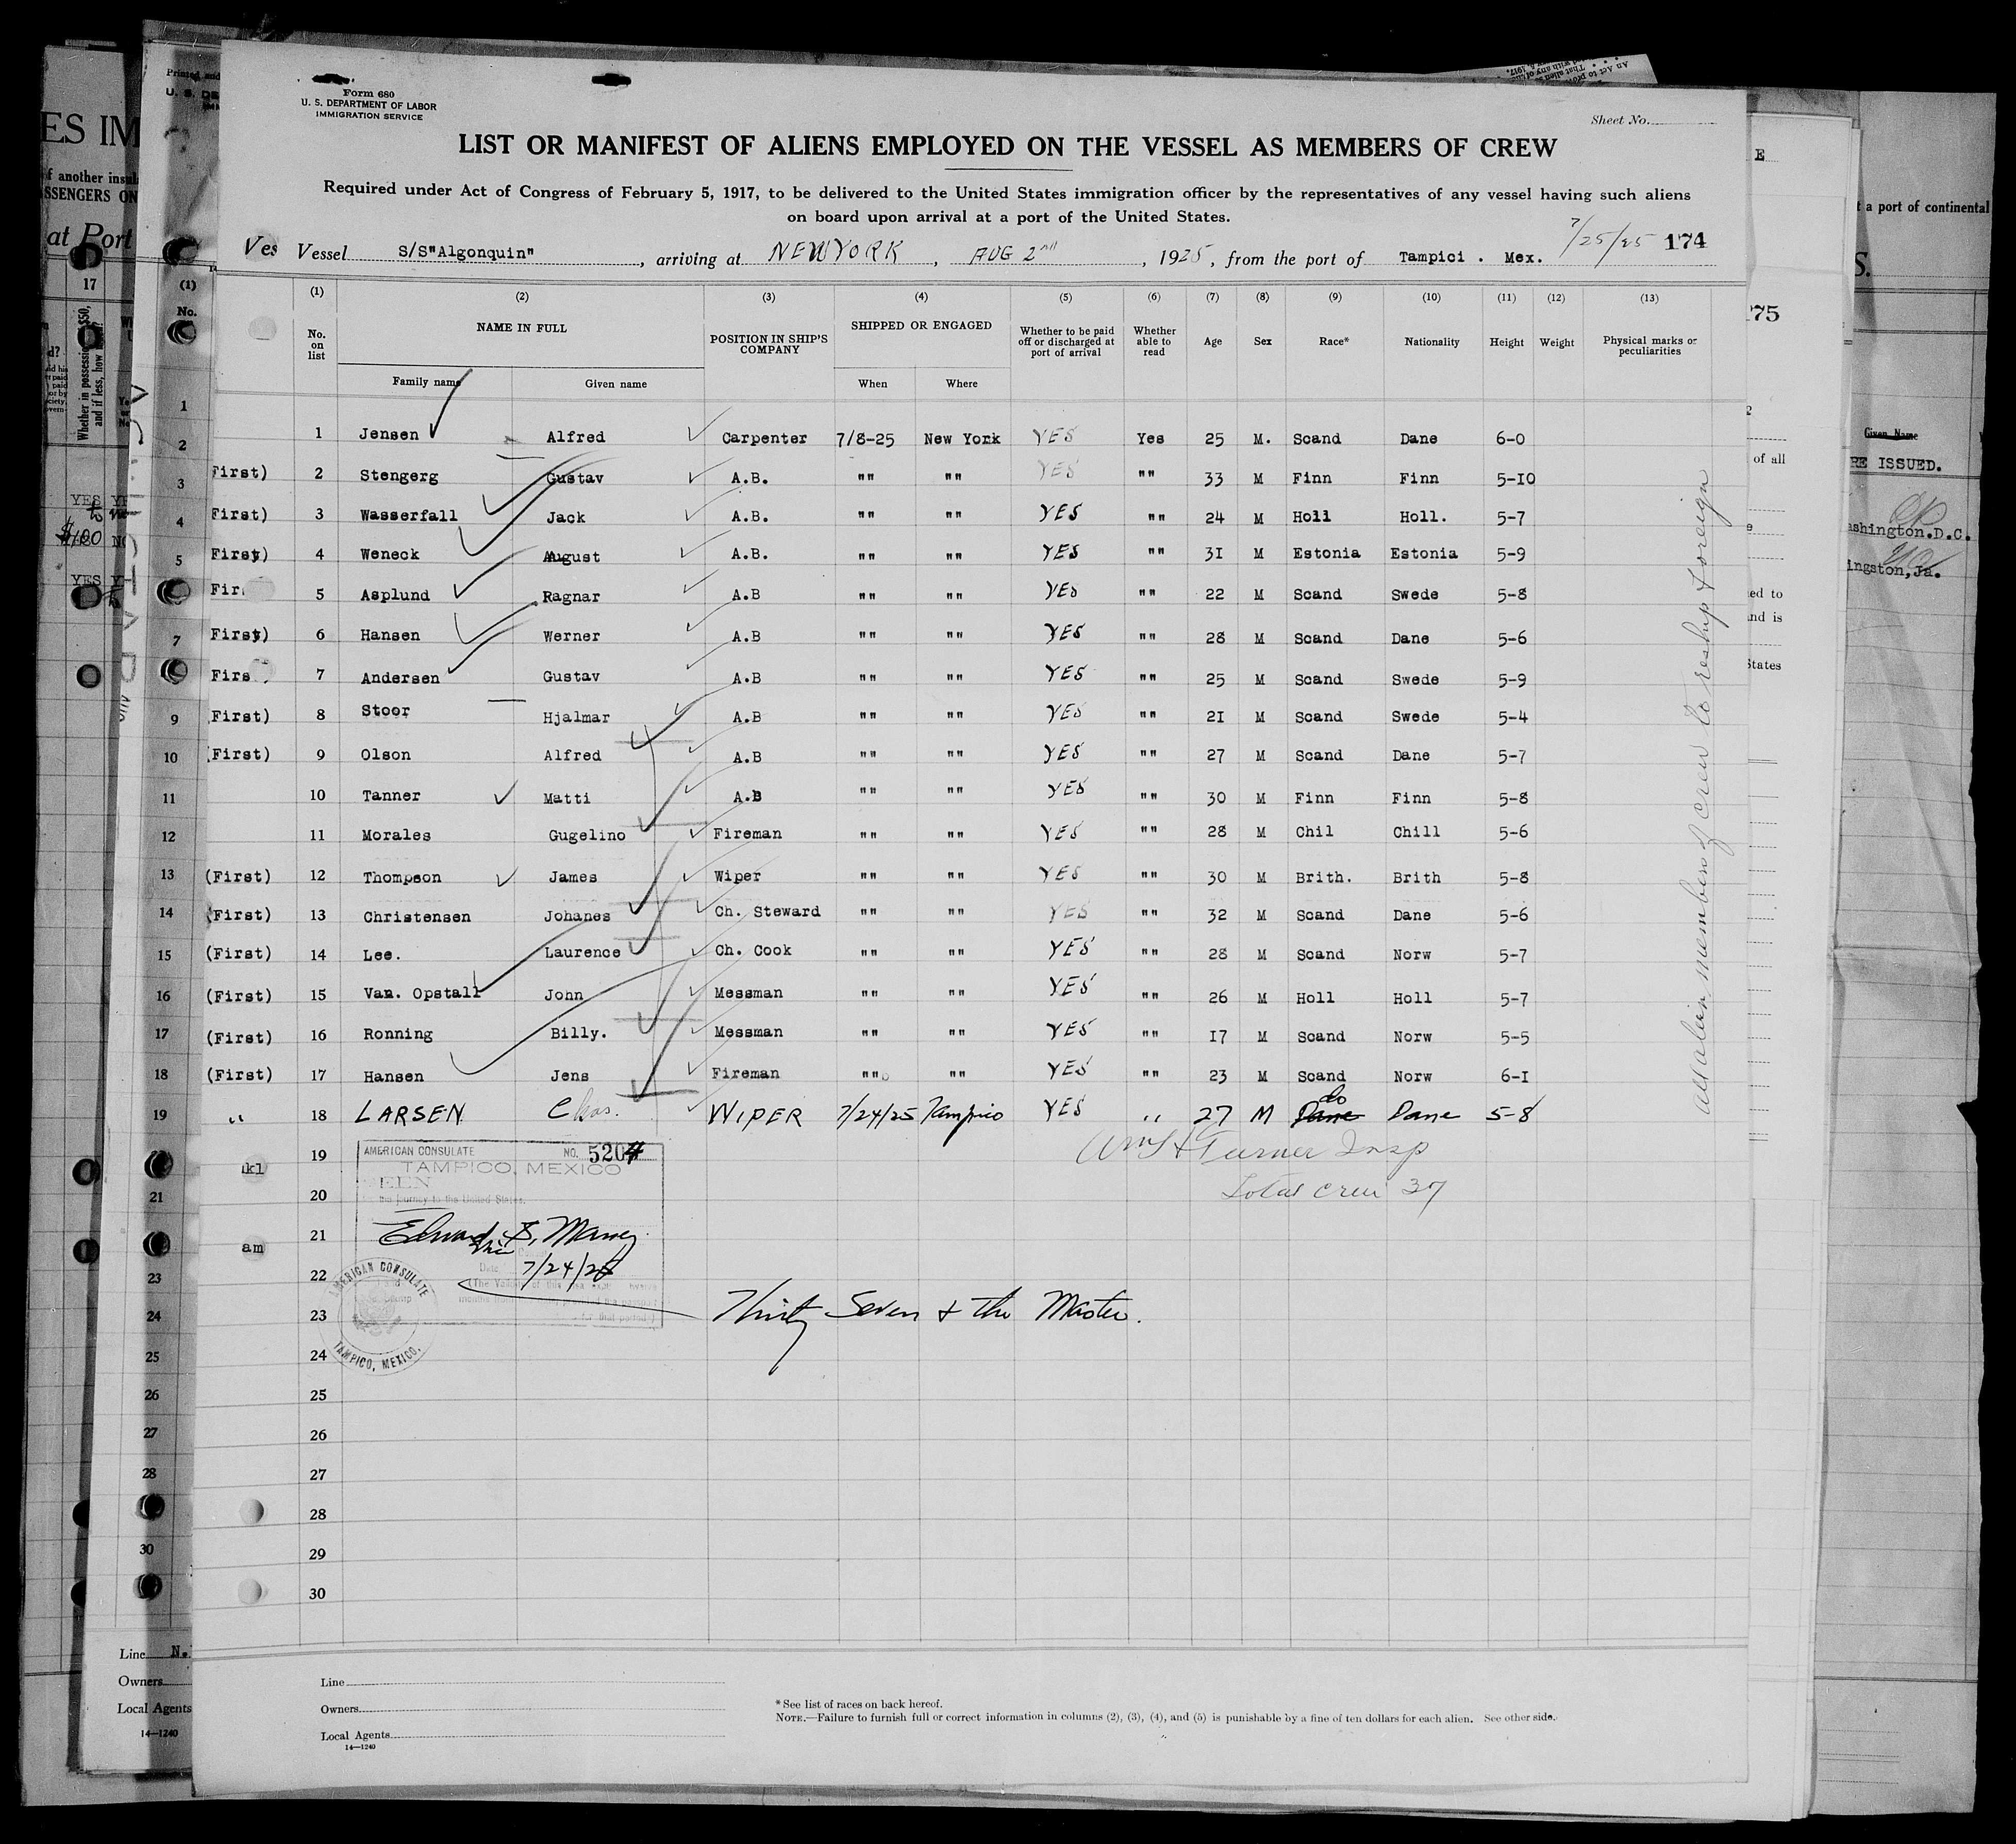 Form 680
U. S. DEPARTMENT OF LABOR
IMMIGRATION SERVICE
Sheet No.
LIST OR MANIFEST OF ALIENS EMPLOYED ON THE VESSEL AS MEMBERS OF CREW
Required under Act of Congress of February 5, 1917, to be delivered to the United States immigration officer by the representatives of any vessel having such aliens
on board upon arrival at a port of the United States.
7/25/25 174
Vessel S/S"Algonquin" , arriving at NEW YORK , AUG 2nd , 1925, from the port of Tampici . Mex.
(1) (2) (3) (4) (5) (6) (7) (8) (9) (10) (11) (12) (13)
No. on list NAME IN FULL Family name Given name POSITION IN SHIP'S COMPANY SHIPPED OR ENGAGED When Where Whether to be paid off or discharged at port of arrival Whether able to read Age Sex Race* Nationality Height Weight Physical marks or peculiarities
1 Jensen Alfred Carpenter 7/8-25 New York YES Yes 25 M. Scand Dane 6-0
First) 2 Stengerg Gustav A.B. "" "" YES "" 33 M Finn Finn 5-10
First) 3 Wasserfall Jack A.B. "" "" YES "" 24 M Holl Holl. 5-7
First) 4 Weneck August A.B. "" "" YES "" 31 M Estonia Estonia 5-9
Fir 5 Asplund Ragnar A.B "" "" YES "" 22 M Scand Swede 5-8
First) 6 Hansen Werner A.B "" "" YES "" 28 M Scand Dane 5-6
Firs 7 Andersen Gustav A.B "" "" YES "" 25 M Scand Swede 5-9
(First) 8 Stoor Hjalmar A.B "" "" YES "" 21 M Scand Swede 5-4
(First) 9 Olson Alfred A.B "" "" YES "" 27 M Scand Dane 5-7
10 Tanner Matti A.B "" "" YES "" 30 M Finn Finn 5-8
11 Morales Gugelino Fireman "" "" YES "" 28 M Chil Chill 5-6
(First) 12 Thompson James Wiper "" "" YES "" 30 M Brith. Brith 5-8
(First) 13 Christensen Johanes Ch. Steward "" "" YES "" 32 M Scand Dane 5-6
(First) 14 Lee. Laurence Ch. Cook "" "" YES "" 28 M Scand Norw 5-7
(First) 15 Van. Opstall John Messman "" "" YES "" 26 M Holl Holl 5-7
(First) 16 Ronning Billy. Messman "" "" YES "" 17 M Scand Norw 5-5
(First) 17 Hansen Jens Fireman "" "" YES "" 23 M Scand Norw 6-1
" 18 LARSEN Chas. WIPER 7/24/25 Tampico YES " 27 M Dane do Dane 5-8
19
20
21
22
23
24
25
26
27
28
29
30
AMERICAN CONSULATE NO. 5204
TAMPICO, MEXICO
SEEN
the journey to the United States.
Edward S. Maney
Vice
Date 7/24/25
AMERICAN CONSULATE
TAMPICO, MEXICO.
Wm H Turner Insp
Total crew 37
Thirty Seven & the Master.
All alien members of crew to reship foreign
Line
Owners
Local Agents
14—1240
*See list of races on back hereof.
NOTE.—Failure to furnish full or correct information in columns (2), (3), (4), and (5) is punishable by a fine of ten dollars for each alien. See other side.
ES IM
f another insul
SSENGERS ON
at Port
17
Whether in possession of $50,
and if less, how
YES
$100
YES
Line N.
Owners
Local Agents
14—1240
175
of all
States
t a port of continental
Given Name
RE ISSUED.
ashington.D.C.
ingston,Ja.